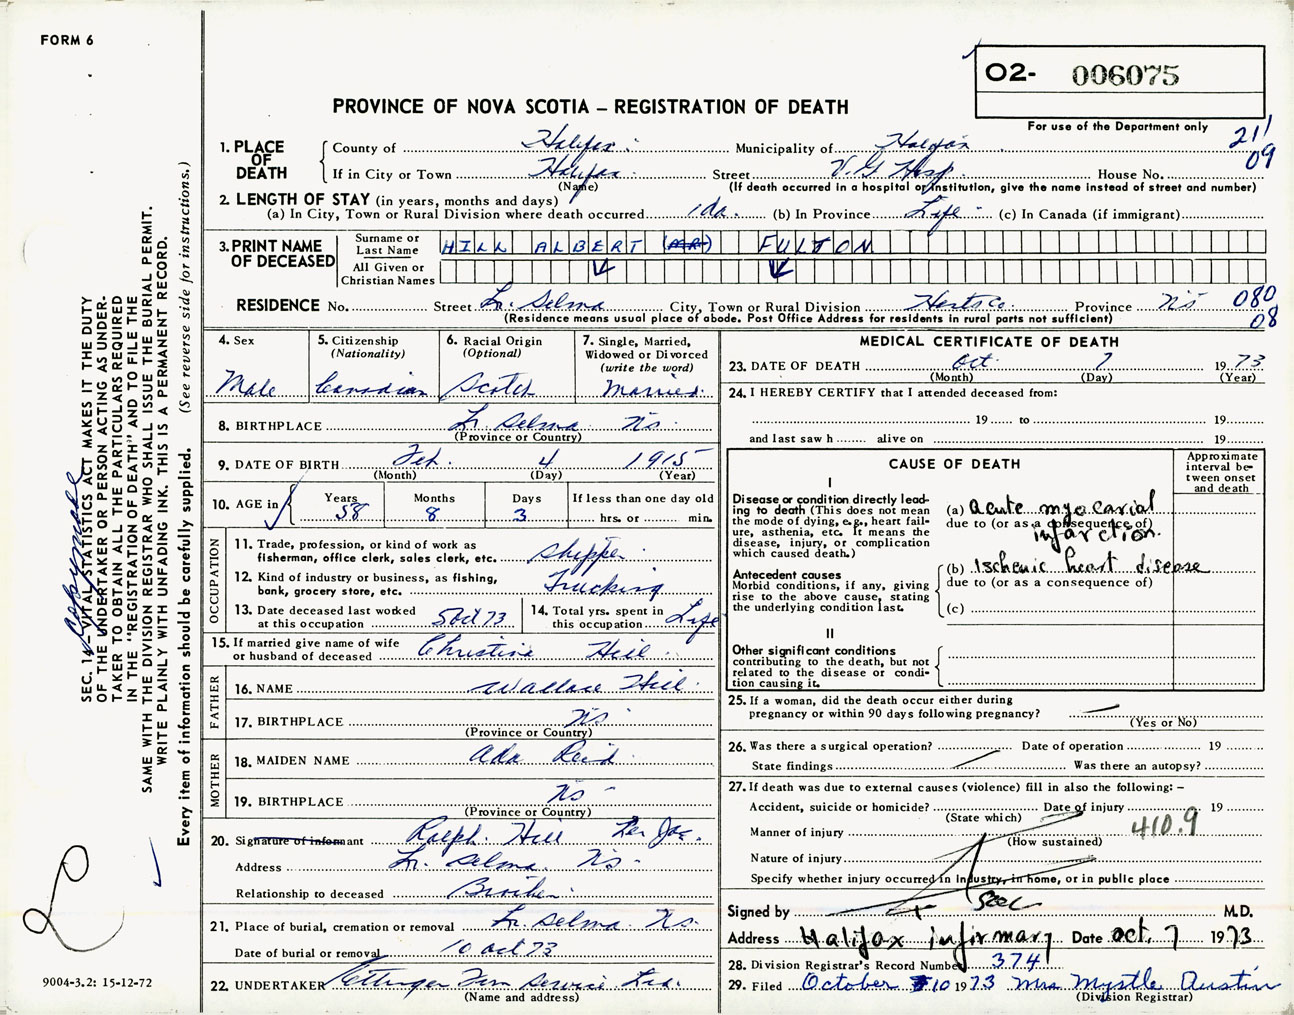 FORM 6
O2- 006075
PROVINCE OF NOVA SCOTIA – REGISTRATION OF DEATH
For use of the Department only
211
09
1. PLACE OF DEATH
County of Halifax Municipality of Halifax
If in City or Town Halifax Street V.G Hosp House No.
(Name) (If death occurred in a hospital or institution, give the name instead of street and number)
2. LENGTH OF STAY (in years, months and days)
(a) In City, Town or Rural Division where death occurred 1da. (b) In Province Life (c) In Canada (if immigrant)
3. PRINT NAME OF DECEASED
Surname or Last Name HILL ALBERT (MR) FULTON
All Given or Christian Names
RESIDENCE No. Street Lr. Selma City, Town or Rural Division Hants Co. Province NS 080
(Residence means usual place of abode. Post Office Address for residents in rural parts not sufficient) 08
4. Sex Male
5. Citizenship (Nationality) Canadian
6. Racial Origin (Optional) Scotch
7. Single, Married, Widowed or Divorced (write the word) Married
8. BIRTHPLACE Lr. Selma NS.
(Province or Country)
9. DATE OF BIRTH Feb. 4 1915
(Month) (Day) (Year)
10. AGE in Years 58 Months 8 Days 3 If less than one day old hrs. or min.
OCCUPATION
11. Trade, profession or kind of work as fisherman, office clerk, sales clerk, etc. Shipper
12. Kind of industry or business, as fishing, bank, grocery store, etc. Trucking
13. Date deceased last worked at this occupation 5 Oct 73
14. Total yrs. spent in this occupation Life
15. If married give name of wife or husband of deceased Christina Hill
FATHER
16. NAME Wallace Hill
17. BIRTHPLACE NS
(Province or Country)
MOTHER
18. MAIDEN NAME Ada Reid
19. BIRTHPLACE NS
(Province or Country)
20. Signature of informant Ralph Hill
Address Lr. Selma NS
Relationship to deceased Brother
21. Place of burial, cremation or removal Lr. Selma NS
Date of burial or removal 10 Oct 73
22. UNDERTAKER Ettinger Fun Service Ltd.
(Name and address)
MEDICAL CERTIFICATE OF DEATH
23. DATE OF DEATH Oct. 7 1973
(Month) (Day) (Year)
24. I HEREBY CERTIFY that I attended deceased from:
19 to 19
and last saw h alive on 19
CAUSE OF DEATH
Approximate interval between onset and death
I
Disease or condition directly leading to death (This does not mean the mode of dying, e.g., heart failure, asthenia, etc. It means the disease, injury, or complication which caused death.)
(a) Acute myocarial
due to (or as a consequence of)
infarction.
Antecedent causes
Morbid conditions, if any, giving rise to the above cause, stating the underlying condition last.
(b) Ischenic heart disease
due to (or as a consequence of)
(c)
II
Other significant conditions
contributing to the death, but not related to the disease or condition causing it.
25. If a woman, did the death occur either during pregnancy or within 90 days following pregnancy?
(Yes or No)
26. Was there a surgical operation? Date of operation 19
State findings Was there an autopsy?
27. If death was due to external causes (violence) fill in also the following: –
Accident, suicide or homicide? Date of injury 19
(State which)
Manner of injury 410.9
(How sustained)
Nature of injury
Specify whether injury occurred in Industry, in home, or in public place
Signed by M.D.
Address Halifax infirmary Date Oct, 7 1973
28. Division Registrar's Record Number 374
29. Filed October 10 1973 Mrs Myrtle Austin
(Division Registrar)
SEC. 14 – VITAL STATISTICS ACT MAKES IT THE DUTY
OF THE UNDERTAKER OR PERSON ACTING AS UNDER-
TAKER TO OBTAIN ALL THE PARTICULARS REQUIRED
IN THE "REGISTRATION OF DEATH" AND TO FILE THE
SAME WITH THE DIVISION REGISTRAR WHO SHALL ISSUE THE BURIAL PERMIT.
WRITE PLAINLY WITH UNFADING INK. THIS IS A PERMANENT RECORD.
Every item of information should be carefully supplied. (See reverse side for instructions.)
9004-3.2: 15-12-72